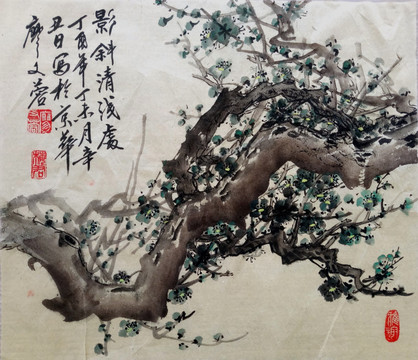 影斜清浅处
丁酉年丁未月辛
丑日写於京华
廖文